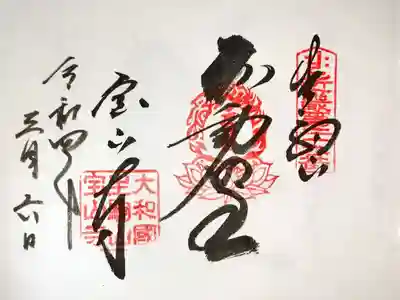 奉拝
不動明王
宝山寺
令和四年
三月六日
大和國
生駒山
宝山寺